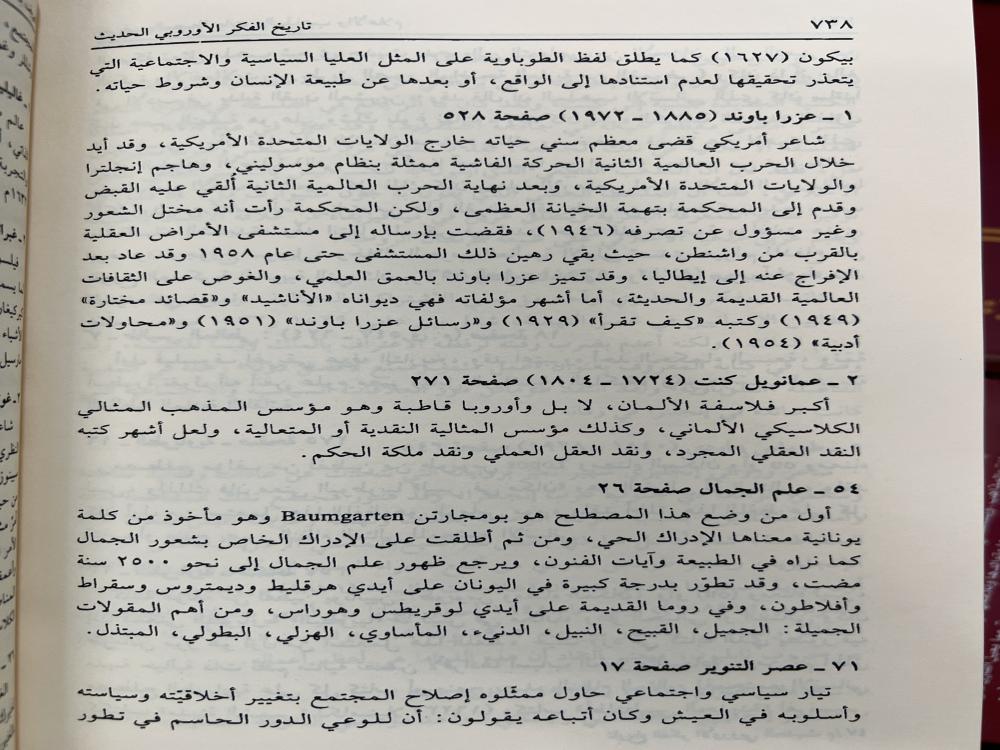 ٧٣٨
تاريخ الفكر الأوروبي الحديث
بيكون (١٦٢٧) كما يطلق لفظ الطوباوية على المثل العليا السياسية والاجتماعية التي
يتعذر تحقيقها لعدم استنادها إلى الواقع، أو بعدها عن طبيعة الإنسان وشروط حياته.
١ ـ عزرا باوند (١٨٨٥ ـ ١٩٧٢) صفحة ٥٢٨
شاعر أمريكي قضى معظم سني حياته خارج الولايات المتحدة الأمريكية، وقد أيد
خلال الحرب العالمية الثانية الحركة الفاشية ممثلة بنظام موسوليني، وهاجم إنجلترا
والولايات المتحدة الأمريكية، وبعد نهاية الحرب العالمية الثانية أُلقي عليه القبض
وقدم إلى المحكمة بتهمة الخيانة العظمى، ولكن المحكمة رأت أنه مختل الشعور
وغير مسؤول عن تصرفه (١٩٤٦)، فقضت بإرساله إلى مستشفى الأمراض العقلية
بالقرب من واشنطن، حيث بقي رهين ذلك المستشفى حتى عام ١٩٥٨ وقد عاد بعد
الإفراج عنه إلى إيطاليا، وقد تميز عزرا باوند بالعمق العلمي، والغوص على الثقافات
العالمية القديمة والحديثة، أما أشهر مؤلفاته فهي ديواناه «الأناشيد» و«قصائد مختارة»
(١٩٤٩) وكتبه «كيف تقرأ» (١٩٢٩) و«رسائل عزرا باوند» (١٩٥١) و«محاولات
أدبية» (١٩٥٤).
٢ ـ عمانويل كنت (١٧٢٤ ـ ١٨٠٤) صفحة ٢٧١
أكبر فلاسفة الألمان، لا بل وأوروبا قاطبة وهو مؤسس المذهب المثالي
الكلاسيكي الألماني، وكذلك مؤسس المثالية النقدية أو المتعالية، ولعل أشهر كتبه
النقد العقلي المجرد، ونقد العقل العملي ونقد ملكة الحكم.
٥٤ ـ علم الجمال صفحة ٢٦
أول من وضع هذا المصطلح هو بومجارتن Baumgarten وهو مأخوذ من كلمة
يونانية معناها الإدراك الحي، ومن ثم أطلقت على الإدراك الخاص بشعور الجمال
كما نراه في الطبيعة وآيات الفنون، ويرجع ظهور علم الجمال إلى نحو ٢٥٠٠ سنة
مضت، وقد تطوّر بدرجة كبيرة في اليونان على أيدي هرقليط وديمتروس وسقراط
وأفلاطون، وفي روما القديمة على أيدي لوقريطس وهوراس، ومن أهم المقولات
الجميلة: الجميل، القبيح، النبيل، الدنيء، المأساوي، الهزلي، البطولي، المبتذل.
٧١ ـ عصر التنوير صفحة ١٧
تيار سياسي واجتماعي حاول ممثّلوه إصلاح المجتمع بتغيير أخلاقيّته وسياسته
وأسلوبه في العيش وكان أتباعه يقولون: أن للوعي الدور الحاسم في تطور